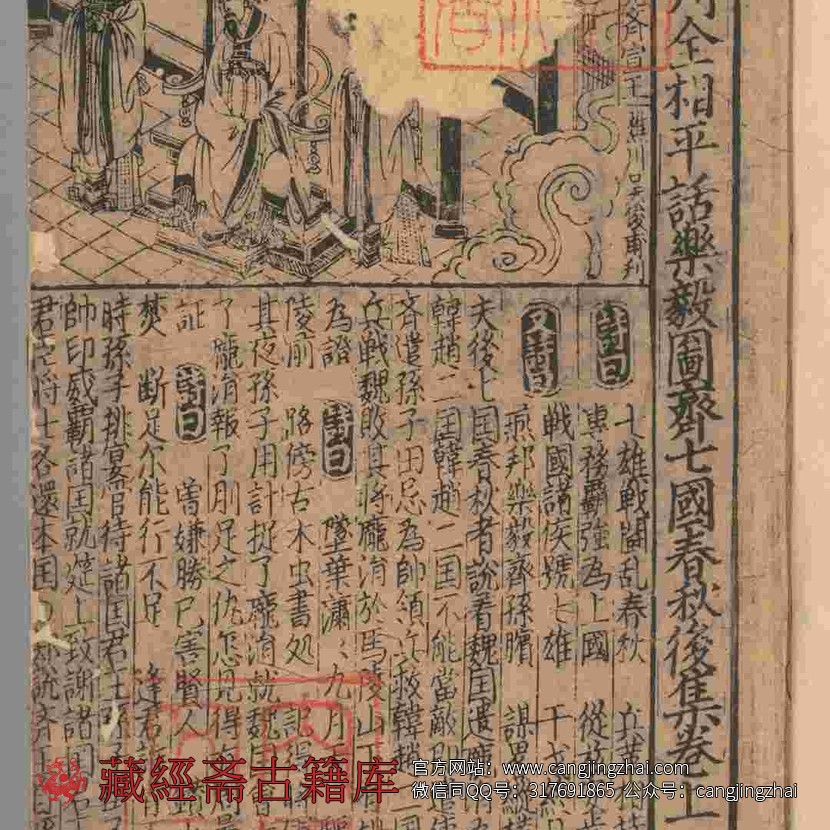 刋全相平話樂毅圖齊七國春秋後集卷上
齊宣王
詩曰 七雄戰鬪乱春秋 兵革
専務霸強為上國 從
又詩曰 戰國諸侯號七雄 干戈
燕邦樂毅齊孫臏 謀
夫後七国春秋者說着魏国遣龐
韓趙二国韓趙二国不能當敵即
齊遣孫子田忌為帥領兵救韓趙
兵戰魏敗其將龐涓於馬陵山下
為證 詩曰 墜葉瀟〻九月
陵前 路傍古木虫書処
其夜孫子用計捉了龐涓就魏国
了龐涓報了刖足之仇怎見得
証 詩曰 曾嫌勝已害賢人
焚 断足尔能行不足 逢君
時孫子排宴管待諸国君王孫子
帥印威霸諸国就筵上致謝諸国
君臣將士各還本国
藏經斋古籍库
官方网站：www.cangjingzhai.com
微信同QQ号：317691865 公众号：cangjingzhai